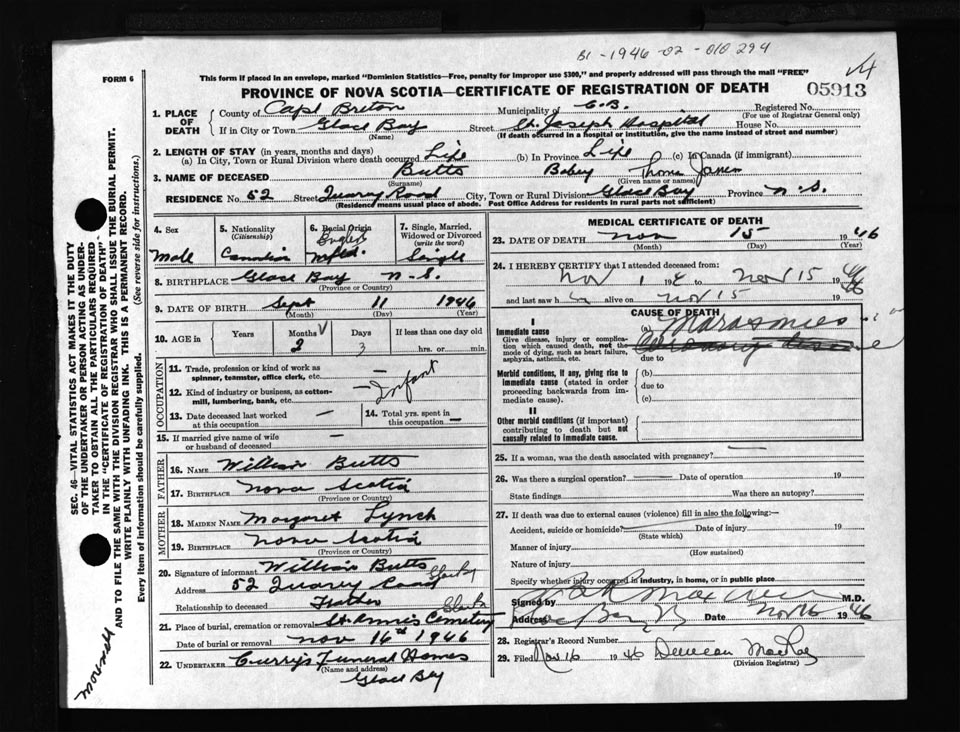 B1-1946-02-010294
FORM 6
This form if placed in an envelope, marked "Dominion Statistics—Free, penalty for improper use $300," and properly addressed will pass through the mail "FREE"
PROVINCE OF NOVA SCOTIA—CERTIFICATE OF REGISTRATION OF DEATH
05913
1. PLACE OF DEATH
County of Cape Breton Municipality of C.B. Registered No.
(For use of Registrar General only)
If in City or Town Glace Bay Street St. Joseph Hospital House No.
(Name) (If death occurred in a hospital or institution, give the name instead of street and number)
2. LENGTH OF STAY (in years, months and days)
(a) In City, Town or Rural Division where death occurred Life (b) In Province Life (c) In Canada (if immigrant)
3. NAME OF DECEASED Butts Baby Thomas James
(Surname) (Given name or names)
RESIDENCE No. 52 Street Quarry Road City, Town or Rural Division Glace Bay Province N.S.
(Residence means usual place of abode. Post Office Address for residents in rural parts not sufficient)
4. Sex
Male
5. Nationality
(Citizenship)
Canadian
6. Racial Origin
English
Nfld.
7. Single, Married, Widowed or Divorced
(write the word)
Single
8. BIRTHPLACE Glace Bay N.S.
(Province or Country)
9. DATE OF BIRTH Sept 11 1946
(Month) (Day) (Year)
10. AGE in Years Months Days If less than one day old
2 3 hrs. or min.
OCCUPATION
11. Trade, profession or kind of work as spinner, teamster, office clerk, etc. —
12. Kind of industry or business, as cotton-mill, lumbering, bank, etc. — Infant
13. Date deceased last worked at this occupation —
14. Total yrs. spent in this occupation —
15. If married give name of wife or husband of deceased —
FATHER
16. NAME William Butts
17. BIRTHPLACE Nova Scotia
(Province or Country)
MOTHER
18. MAIDEN NAME Margaret Lynch
19. BIRTHPLACE Nova Scotia
(Province or Country)
20. Signature of informant William Butts
Address 52 Quarry Road Glace Bay
Relationship to deceased Father
21. Place of burial, cremation or removal St. Anne's Cemetery Glace Bay
Date of burial or removal Nov 16th 1946
22. UNDERTAKER Curry's Funeral Homes
(Name and address)
Glace Bay
MEDICAL CERTIFICATE OF DEATH
23. DATE OF DEATH Nov 15 1946
(Month) (Day) (Year)
24. I HEREBY CERTIFY that I attended deceased from:
Nov 1 194 to Nov 15 1946
and last saw h alive on Nov 15 19
CAUSE OF DEATH
I
Immediate cause (a) Marasmus
Give disease, injury or complication which caused death, not the mode of dying, such as heart failure, asphyxia, asthenia, etc.
due to
Morbid conditions, if any, giving rise to immediate cause (stated in order proceeding backwards from immediate cause).
(b)
due to
(c)
II
Other morbid conditions (if important) contributing to death but not causally related to immediate cause.
25. If a woman, was the death associated with pregnancy? —
26. Was there a surgical operation? Date of operation 19
State findings Was there an autopsy?
27. If death was due to external causes (violence) fill in also the following:—
Accident, suicide or homicide? Date of injury 19
(State which)
Manner of injury
(How sustained)
Nature of injury
Specify whether injury occurred in industry, in home, or in public place
Signed by M.D.
Address Date Nov 16 1946
28. Registrar's Record Number
29. Filed Nov 16 1946 Duncan MacRae
(Division Registrar)
SEC. 46—VITAL STATISTICS ACT MAKES IT THE DUTY
OF THE UNDERTAKER OR PERSON ACTING AS UNDER-
TAKER TO OBTAIN ALL THE PARTICULARS REQUIRED
IN THE "CERTIFICATE OF REGISTRATION OF DEATH"
AND TO FILE THE SAME WITH THE DIVISION REGISTRAR WHO SHALL ISSUE THE BURIAL PERMIT.
WRITE PLAINLY WITH UNFADING INK. THIS IS A PERMANENT RECORD.
Every item of information should be carefully supplied. (See reverse side for instructions.)